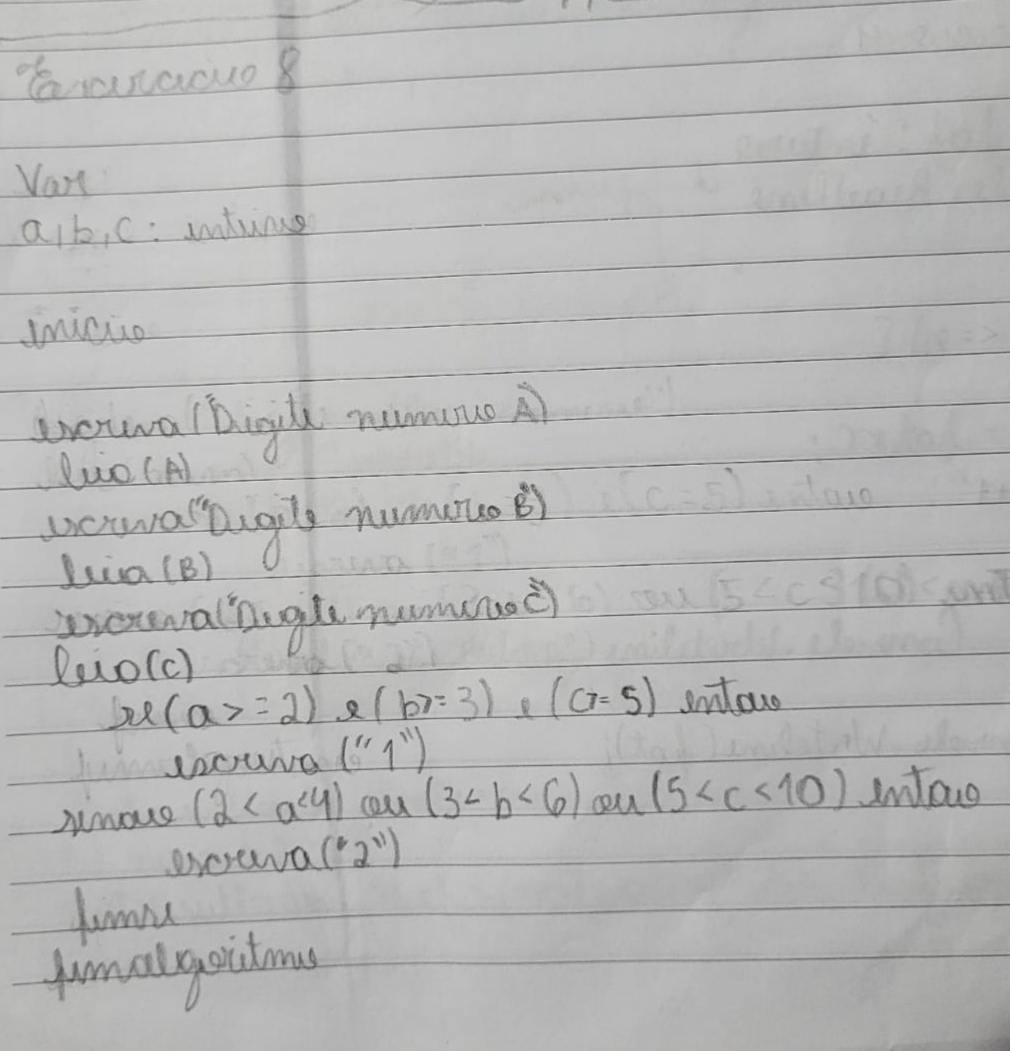 Exercicio 8
Var
a,b,c: inteiro
inicio
escreva("Digite numero A")
leia(A)
escreva("Digite numero B")
leia(B)
escreva("Digite numero C")
leia(C)
se(a>=2) e (b>=3) e (c>=5) entao
escreva ("1")
senao (2<a<4) ou (3<b<6) ou (5<c<10) entao
escreva("2")
fimse
fimalgoritmo